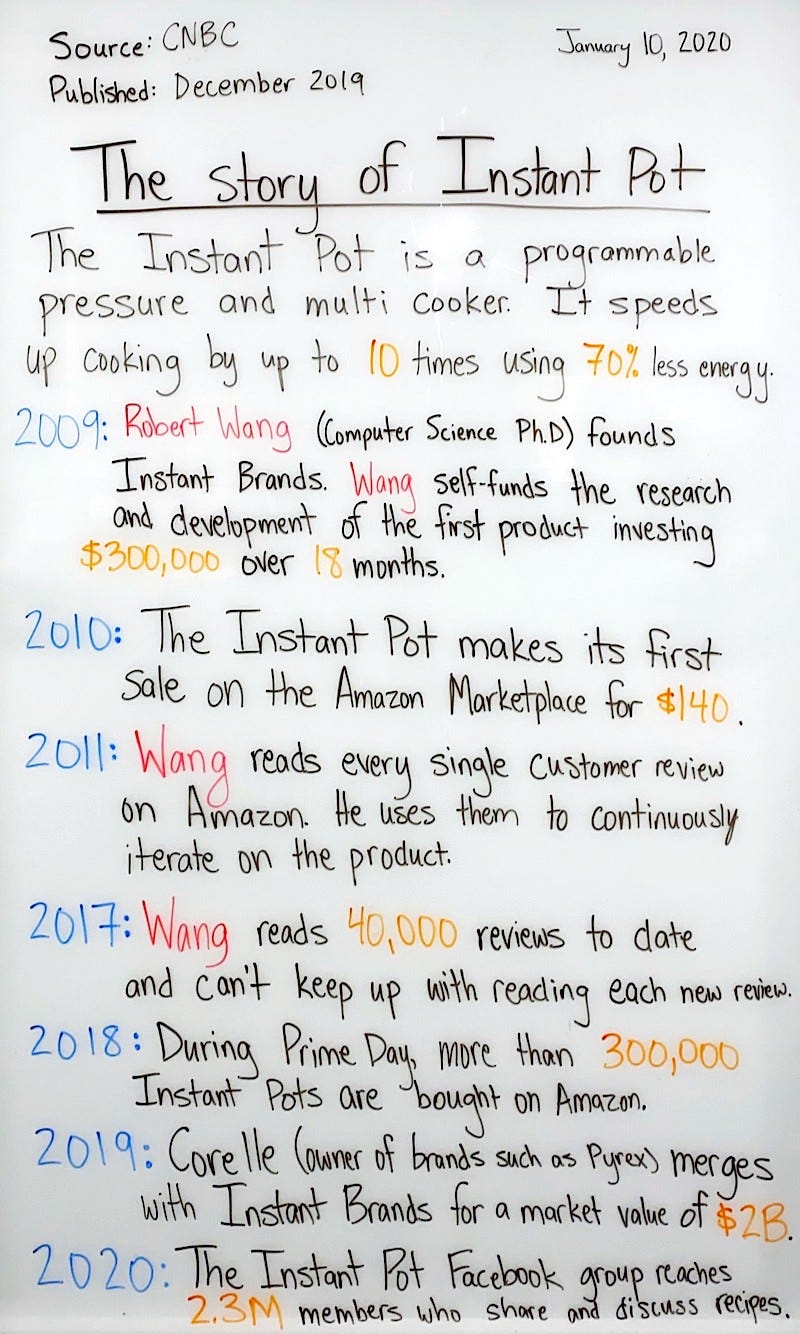 Source: CNBC
January 10, 2020
Published: December 2019
The story of Instant Pot
The Instant Pot is a programmable
pressure and multi cooker. It speeds
up cooking by up to 10 times using 70% less energy.
2009: Robert Wang (Computer Science Ph.D) founds
Instant Brands. Wang self-funds the research
and development of the first product investing
$300,000 over 18 months.
2010: The Instant Pot makes its first
sale on the Amazon Marketplace for $140.
2011: Wang reads every single customer review
on Amazon. He uses them to continuously
iterate on the product.
2017: Wang reads 40,000 reviews to date
and can't keep up with reading each new review.
2018: During Prime Day, more than 300,000
Instant Pots are bought on Amazon.
2019: Corelle (owner of brands such as Pyrex) merges
with Instant Brands for a market value of $2B.
2020: The Instant Pot Facebook group reaches
2.3M members who share and discuss recipes.